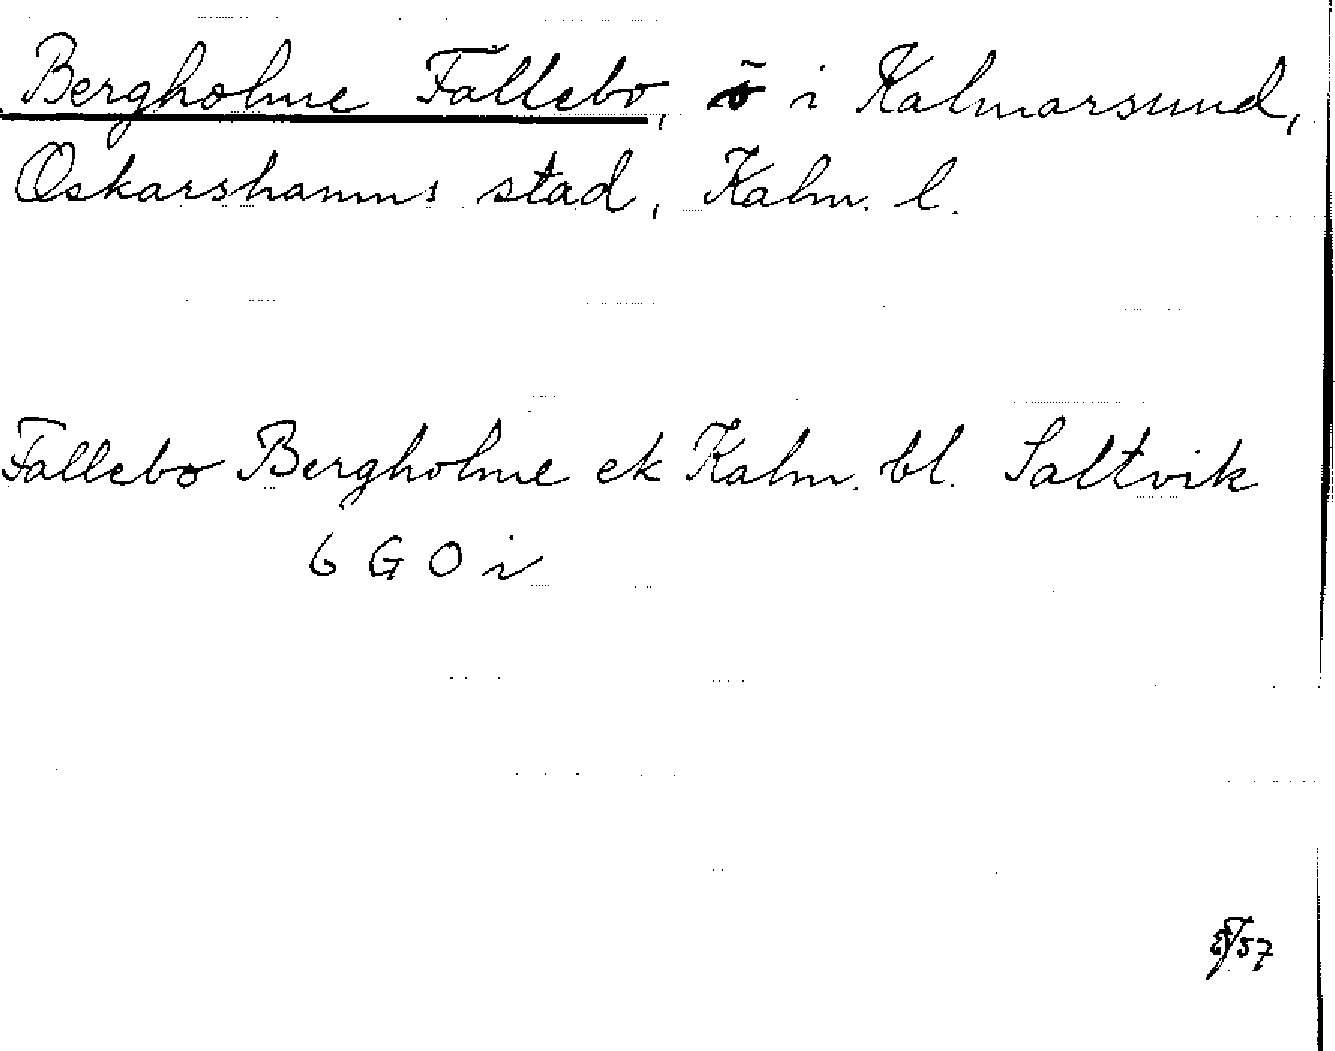 Bergholme Fallebo, ö i Kalmarsund,
Oskarshamns stad, Kalm. l.
Fallebo Bergholme ek Kalm. bl. Saltvik
6 G O i
57